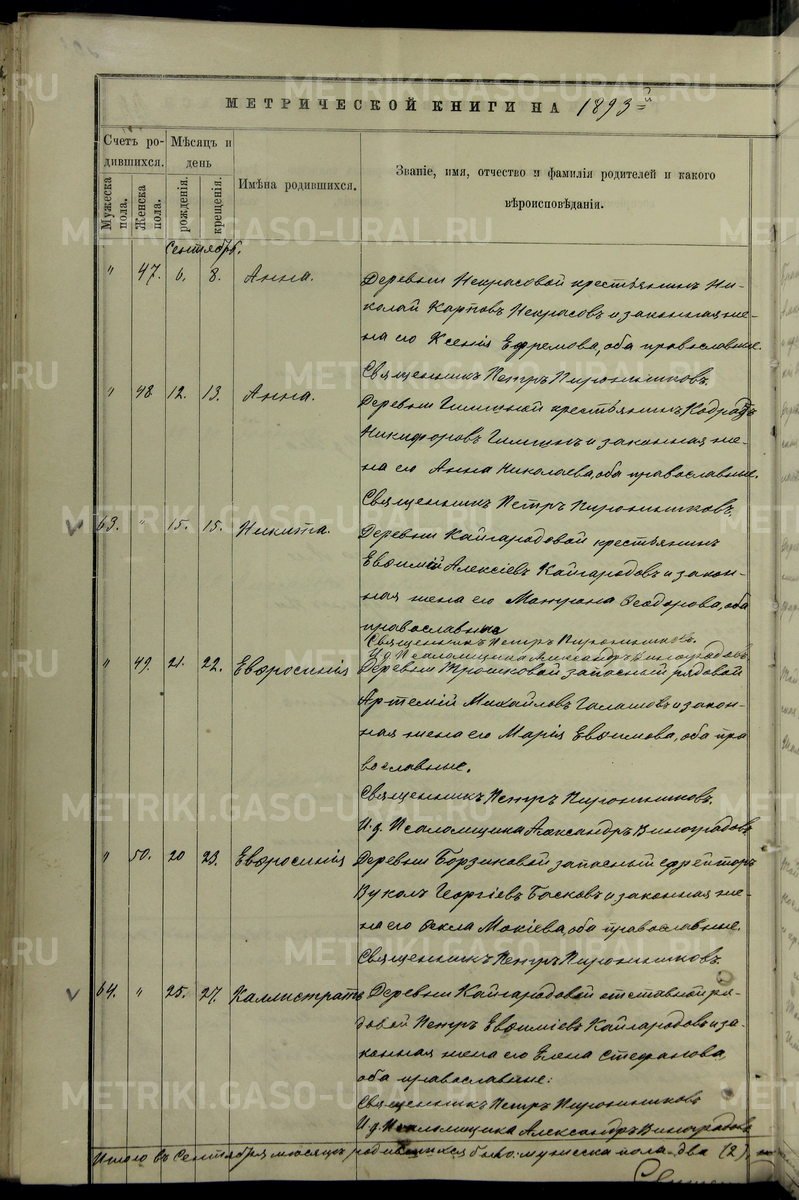 МЕТРИЧЕСКОЙ КНИГИ НА 1893 й
Счетъ ро-
дившихся.
Мѣсяцъ и
день
Имѣна родившихся.
Званіе, имя, отчество и фамилія родителей и какого
вѣроисповѣданія.
Мужеска пола.
Женска пола.
рожденія.
крещенія.
Сентябрь.
" 47. 6. 8. Анна. Деревни Некрасовой крестьянинъ Ни-
колай Карповъ Некрасовъ и законная же-
на его Ксенія Ефремова, оба православные.
Священникъ Петръ
" 48 12. 13. Анна. Деревни крестьянинъ
Никифоровъ и законная же-
на его Анна Николаева, оба православные.
Священникъ Петръ
63. " 15. 15. Никита. Деревни Кайгародовой крестьянинъ
Евѳимій Алексіевъ Кайгародовъ и закон-
ная жена его Матрона Ѳеодорова, оба
православные
Священникъ Петръ
И.д. Псаломщика Александръ Виноградовъ
" 49. 21. 22. Евфросинія Деревни Трошковой запасный рядовой
Артемій Михайловъ Галашовъ и закон-
ная жена его Марія Евѳимова, оба пра
вославные.
Священникъ Петръ
И.д. Псаломщика Александръ Виноградовъ
" 50. 20 23. Евфросинія Деревни Борзиковой запасный ефрейторъ
Вуколъ Георгіевъ Басковъ и законная же-
на его Ѳекла Мокіева, оба православные.
Священникъ Петръ
64. " 25. 27. Каллистратъ Деревни Кайгародовой отставной ря-
довой Петръ Евѳиміевъ Кайгародовъ и за-
конная жена его Елена Стефанова,
оба православные:
Священникъ Петръ
И.д. Псаломщика Александръ Виноградовъ
Итого въ Сентябрѣ мѣсяцѣ родившихся было: мужеска пола два (2),
METRIKI.GASO-URAL.RU